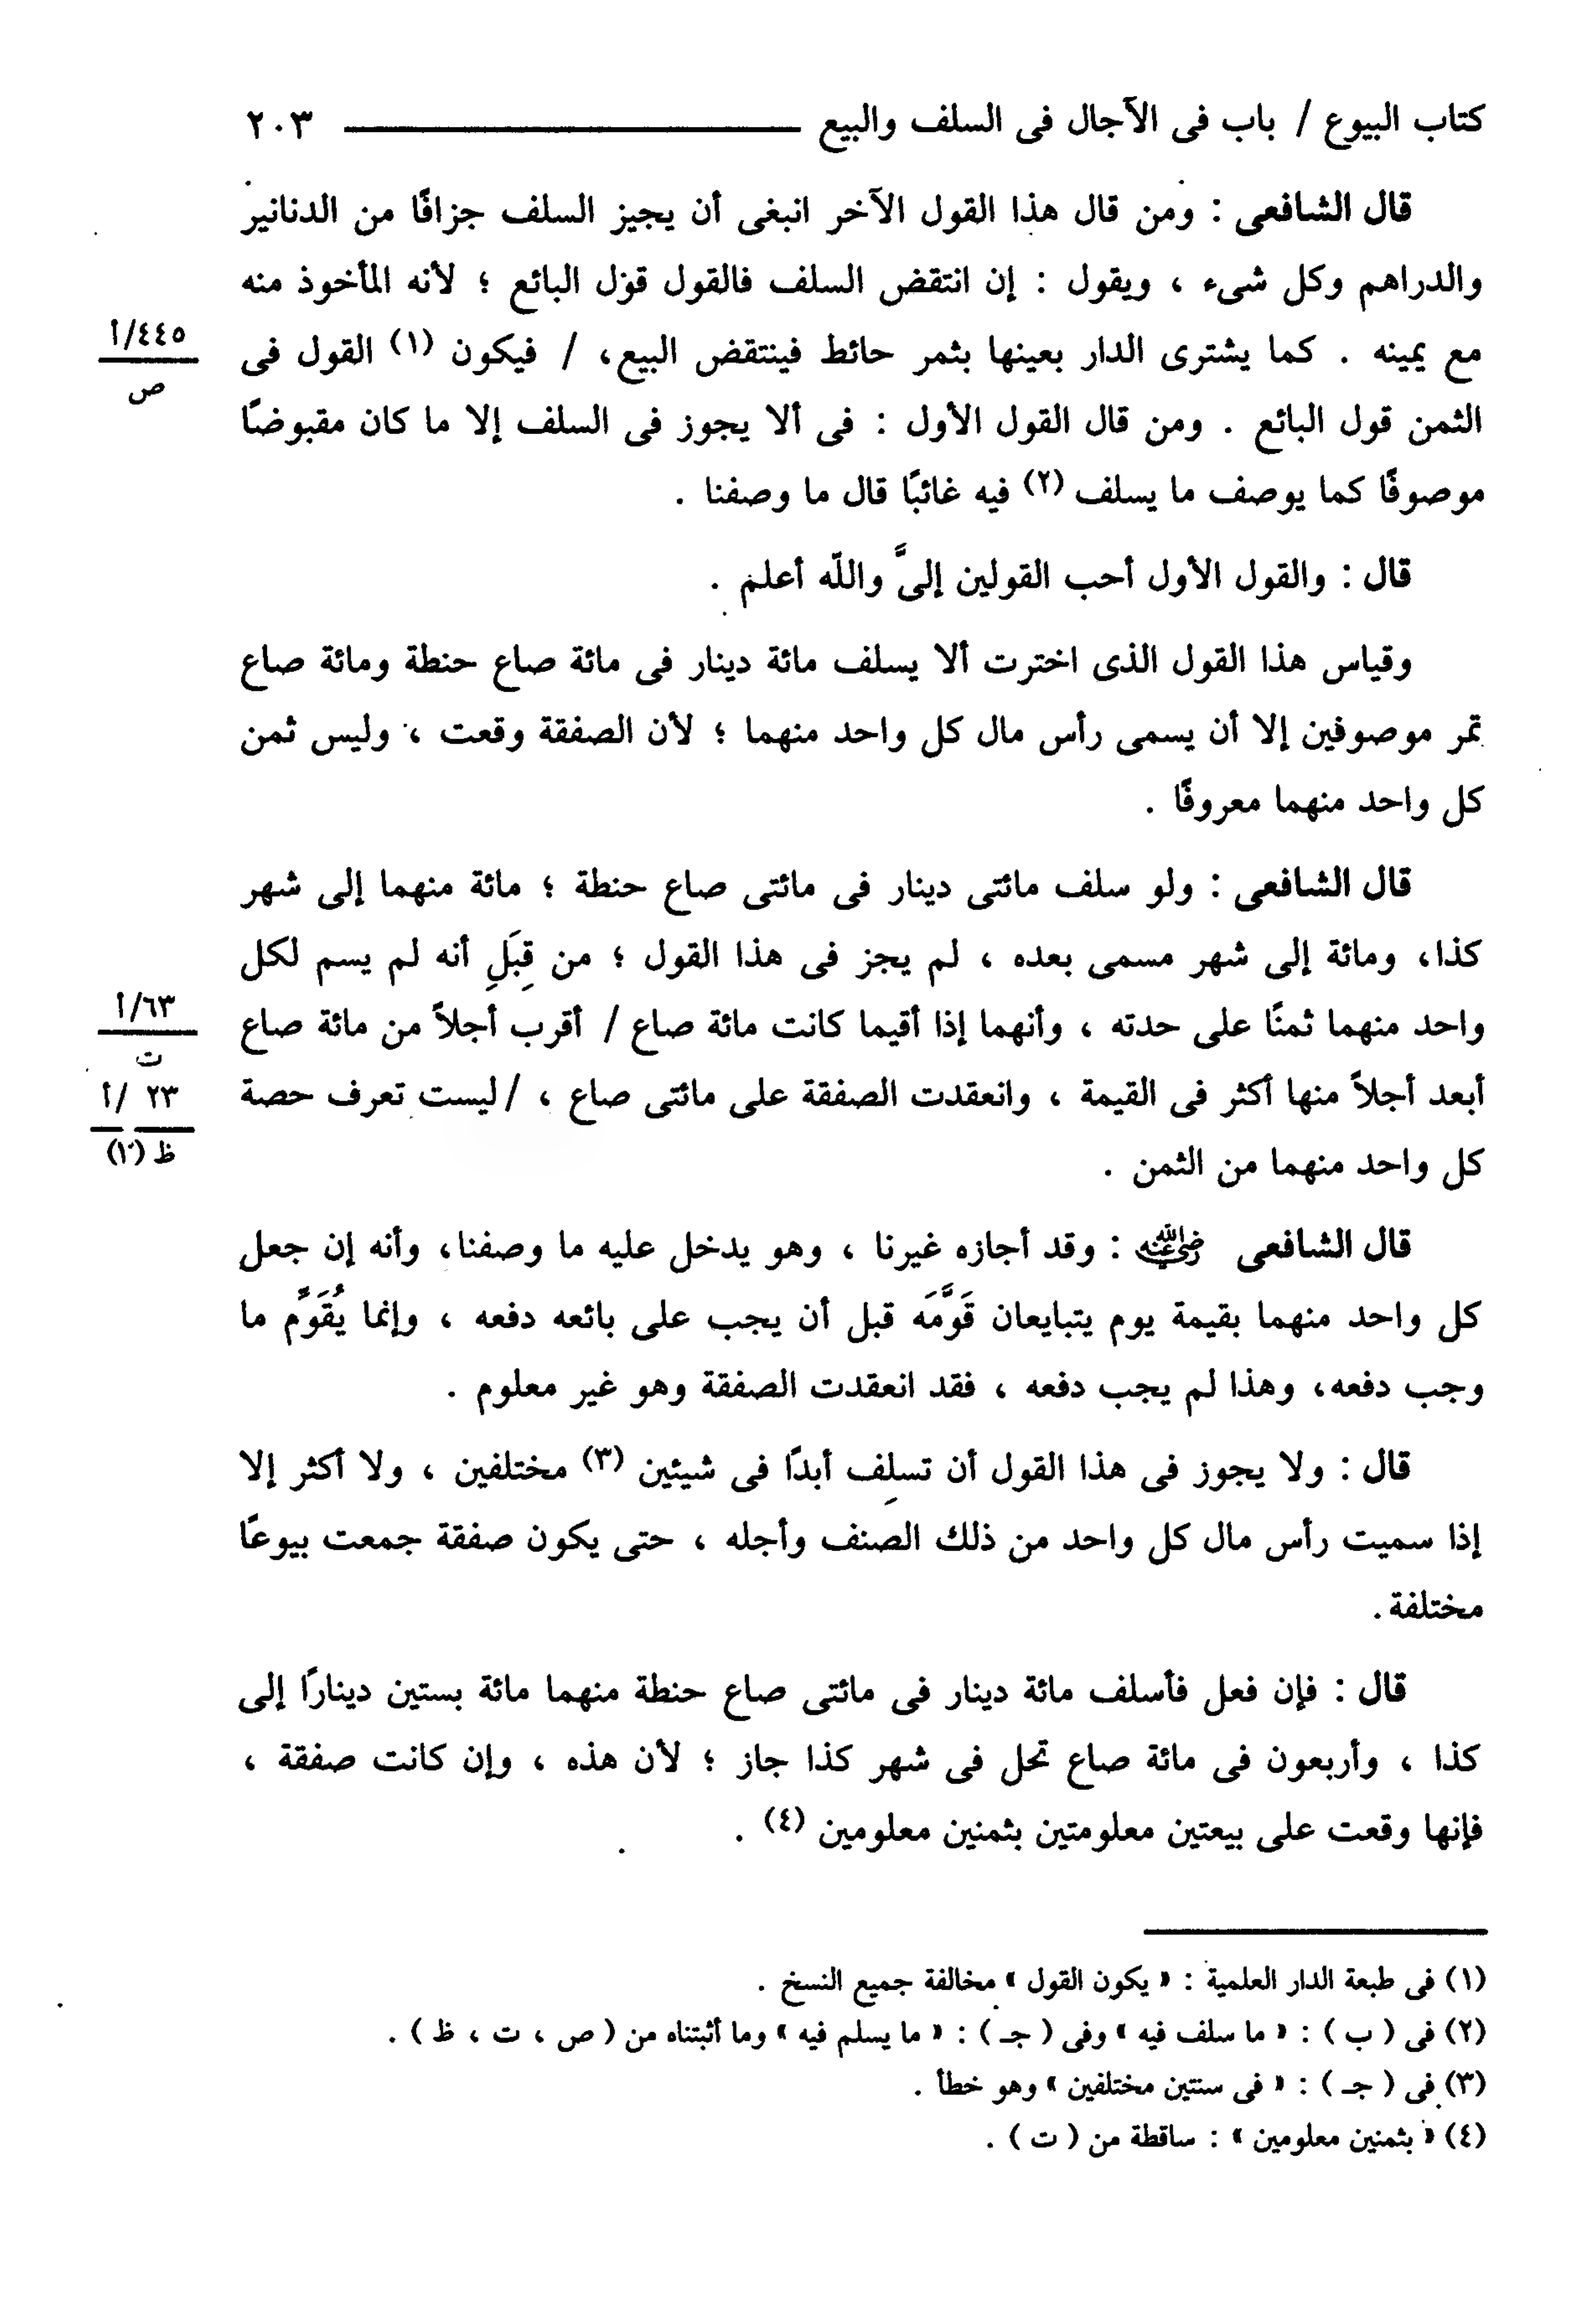 كتاب البيوع / باب فى الآجال فى السلف والبيع ــــــــــــــــــــ ٢٠٣
قال الشافعى : ومن قال هذا القول الآخر انبغى أن يجيز السلف جزافًا من الدنانير
والدراهم وكل شىء ، ويقول : إن انتقض السلف فالقول قول البائع ؛ لأنه المأخوذ منه
مع يمينه . كما يشترى الدار بعينها بثمر حائط فينتقض البيع، / فيكون (١) القول فى
٤٤٥/أ
ص
الثمن قول البائع . ومن قال القول الأول : فى ألا يجوز فى السلف إلا ما كان مقبوضًا
موصوفًا كما يوصف ما يسلف (٢) فيه غائبًا قال ما وصفنا .
قال : والقول الأول أحب القولين إلىَّ والله أعلم .
وقياس هذا القول الذى اخترت ألا يسلف مائة دينار فى مائة صاع حنطة ومائة صاع
تمر موصوفين إلا أن يسمى رأس مال كل واحد منهما ؛ لأن الصفقة وقعت ، وليس ثمن
كل واحد منهما معروفًا .
قال الشافعى : ولو سلف مائتى دينار فى مائتى صاع حنطة ؛ مائة منهما إلى شهر
كذا، ومائة إلى شهر مسمى بعده ، لم يجز فى هذا القول ؛ من قِبَلِ أنه لم يسم لكل
واحد منهما ثمنًا على حدته ، وأنهما إذا أقيما كانت مائة صاع / أقرب أجلاً من مائة صاع
٦٣/أ
ت
أبعد أجلاً منها أكثر فى القيمة ، وانعقدت الصفقة على مائتى صاع ، / ليست تعرف حصة
٢٣ /أ
ظ (١٠)
كل واحد منهما من الثمن .
قال الشافعى رضي الله عنه : وقد أجازه غيرنا ، وهو يدخل عليه ما وصفنا، وأنه إن جعل
كل واحد منهما بقيمة يوم يتبايعان قَوَّمَه قبل أن يجب على بائعه دفعه ، وإنما يُقَوَّم ما
وجب دفعه، وهذا لم يجب دفعه ، فقد انعقدت الصفقة وهو غير معلوم .
قال : ولا يجوز فى هذا القول أن تسلِف أبدًا فى شيئين (٣) مختلفين ، ولا أكثر إلا
إذا سميت رأس مال كل واحد من ذلك الصنف وأجله ، حتى يكون صفقة جمعت بيوعًا
مختلفة .
قال : فإن فعل فأسلف مائة دينار فى مائتى صاع حنطة منهما مائة بستين دينارًا إلى
كذا ، وأربعون فى مائة صاع تحل فى شهر كذا جاز ؛ لأن هذه ، وإن كانت صفقة ،
فإنها وقعت على بيعتين معلومتين بثمنين معلومين (٤) .
(١) فى طبعة الدار العلمية : « يكون القول » مخالفة جميع النسخ .
(٢) فى ( ب ) : « ما سلف فيه » وفى ( جـ ) : « ما يسلم فيه » وما أثبتناه من ( ص ، ت ، ظ ) .
(٣) فى ( جـ ) : « فى سنتين مختلفين » وهو خطأ .
(٤) « بثمنين معلومين » : ساقطة من ( ت ) .